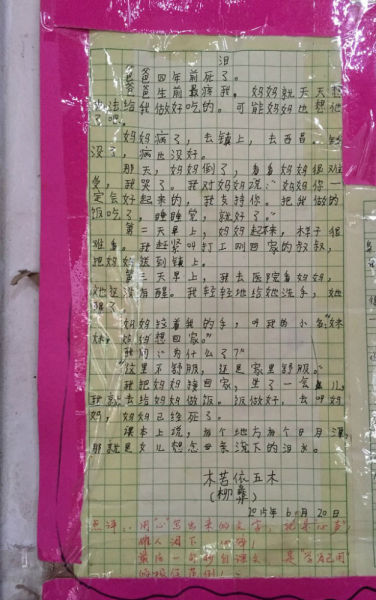 泪
爸爸四年前死了。
爸爸生前最疼我，妈妈就天天想
办法给我做好吃的。可能妈妈也想他
了吧。
妈妈病了，去镇上，去西昌，钱
没了，病也没好。
那天，妈妈倒了，看看妈妈很难
受，我哭了。我对妈妈说：“妈妈你一
定会好起来的，我支持你。把我做的
饭吃了，睡睡觉，就好了。”
第二天早上，妈妈起来，样子很
难看。我赶紧叫打工刚回家的叔叔，
把妈妈送到镇上。
第三天早上，我去医院看妈妈，
她还没有醒。我轻轻地给她洗手，她
醒了。
妈妈拉着我的手，叫我的小名：“妹
妹，妈妈想回家。”
我问：“为什么了？”
“这里不舒服，还是家里舒服。”
我把妈妈接回家，坐了一会儿，
我就去给妈妈做饭。饭做好，去叫妈
妈，妈妈已经死了。
课本上说，有个地方有个日月潭，
那就是女儿想念母亲流下的泪水。
木苦依五木
（柳彝）
2015年6月20日
点评：用心写出来的文字，
催人泪下
最后一句